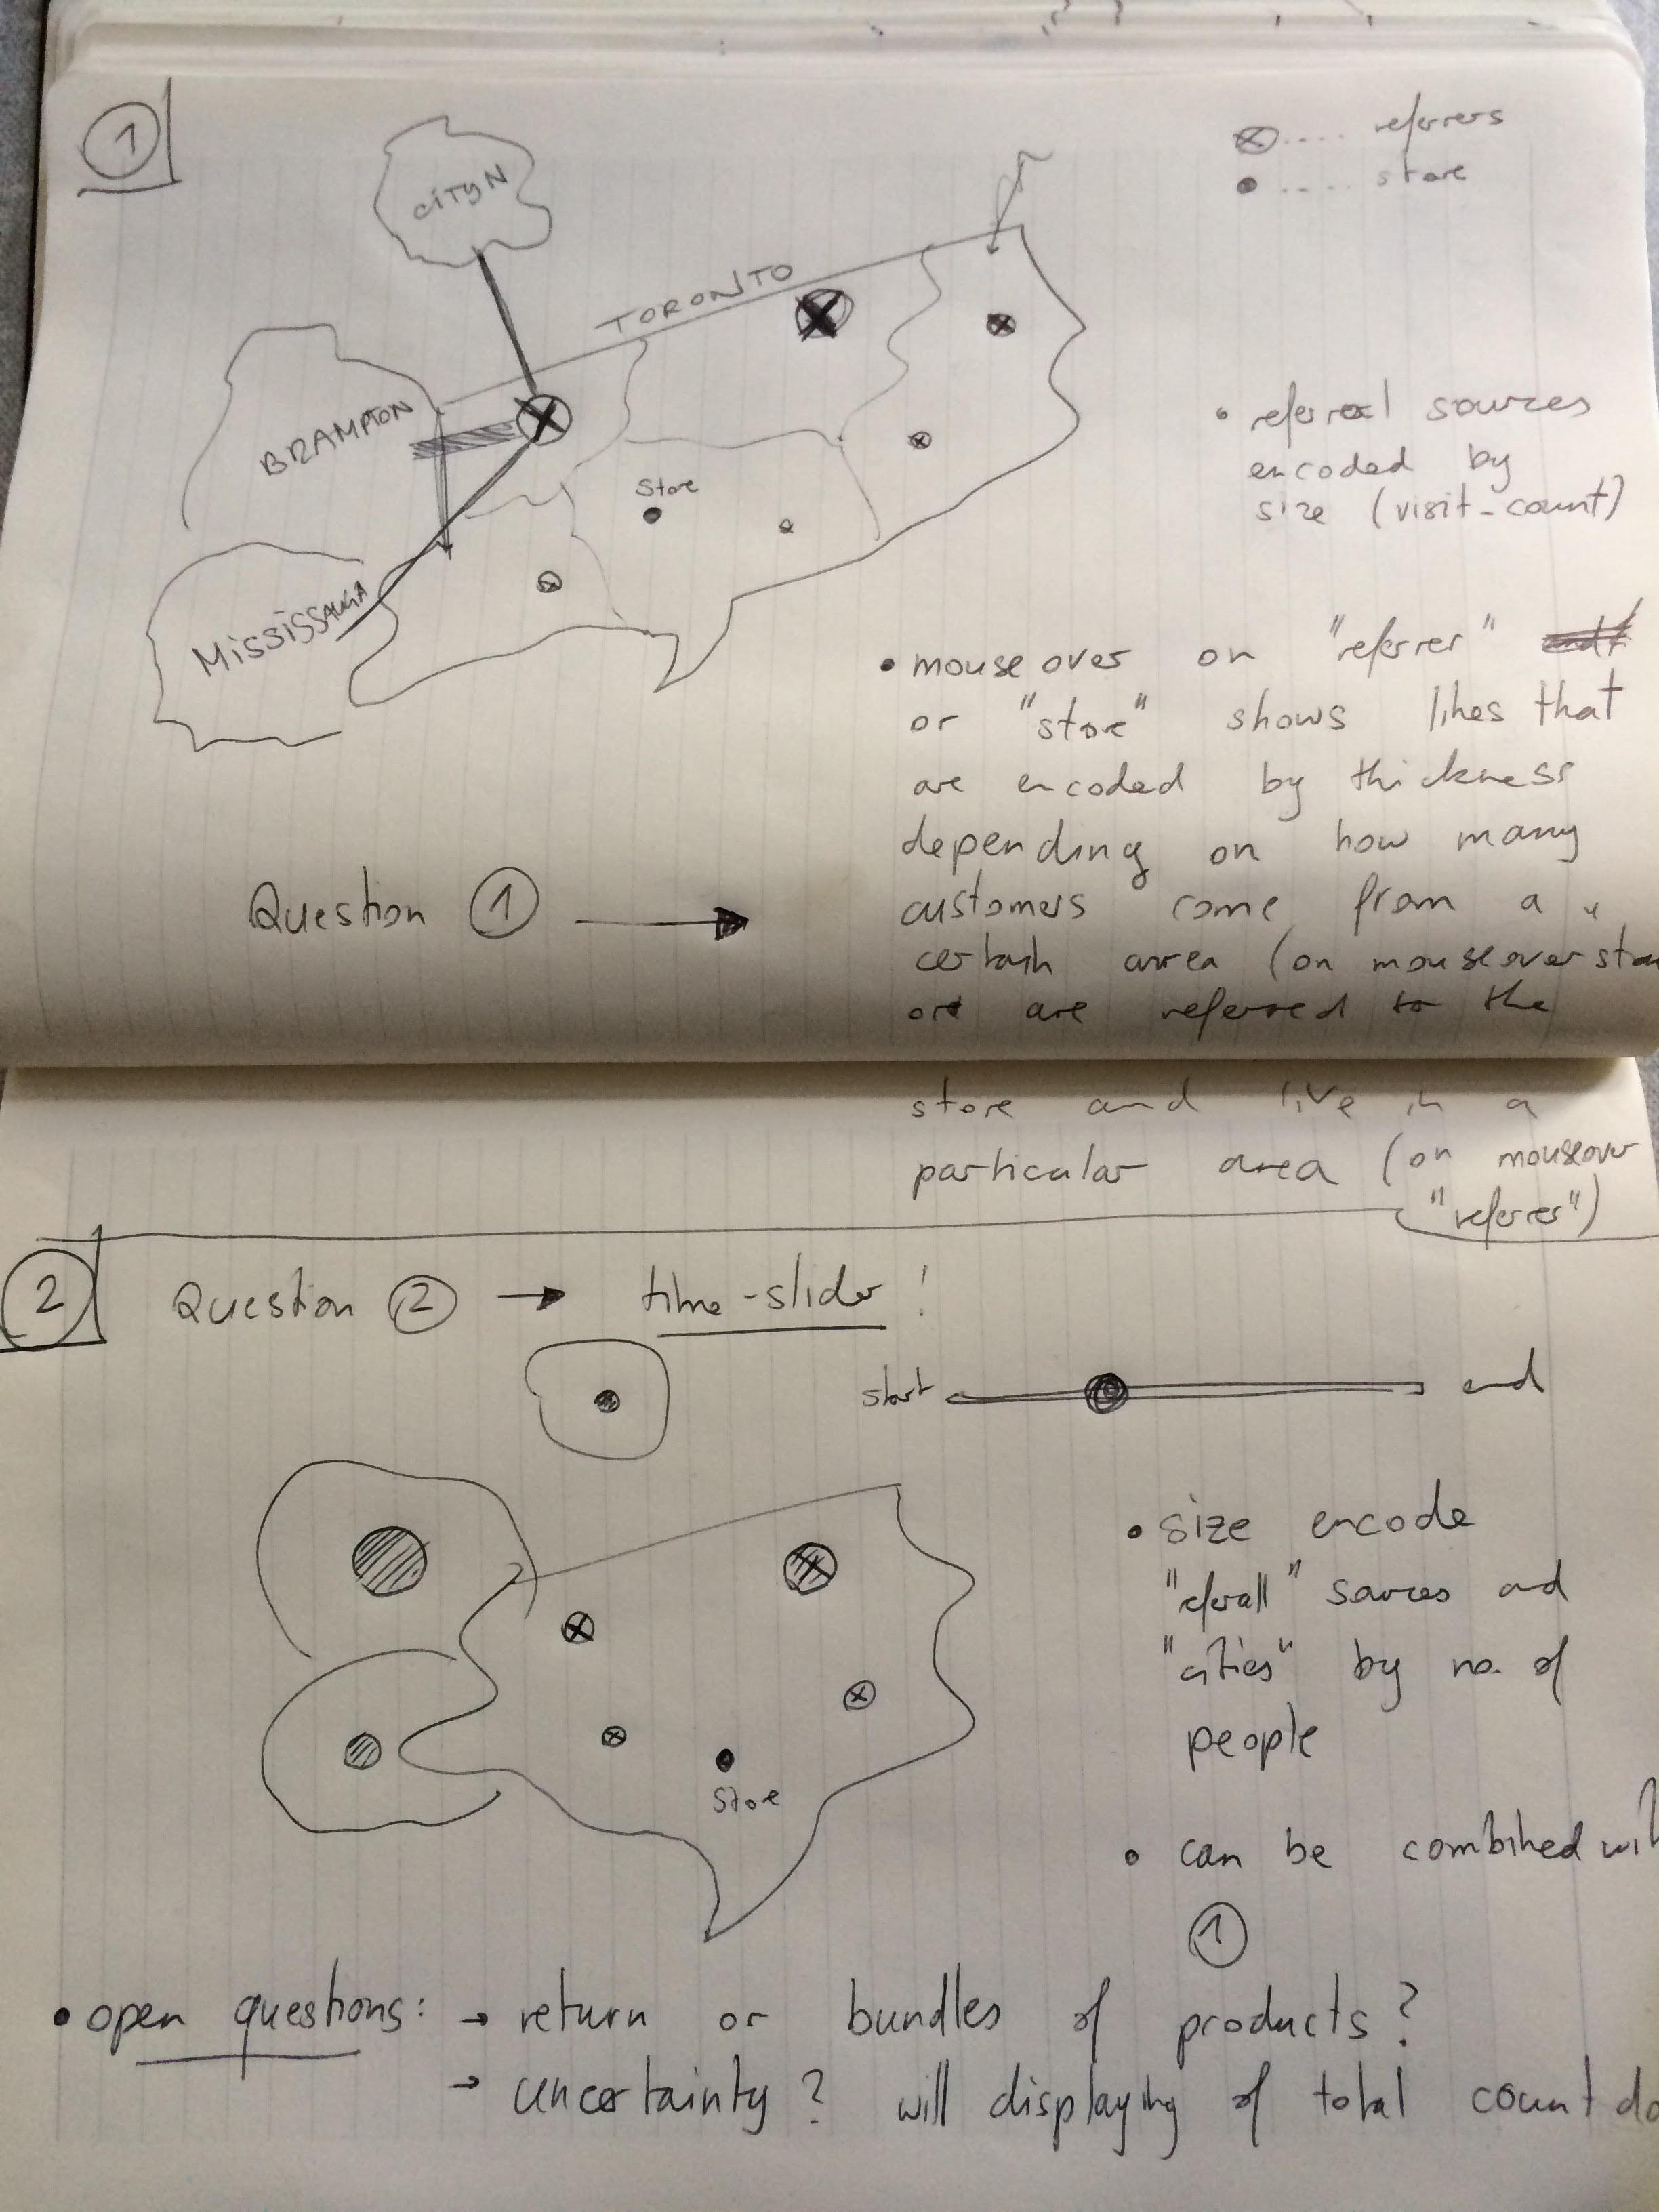 1
CITY N
..... referrers
..... store
TORONTO
BRAMPTON
Store
MISSISSAUGA
• referral sources
encoded by
size (visit-count)
• mouse over on "referrer"
or "store" shows lines that
are encoded by thickness
depending on how many
Question 1 →
customers come from a
certain area (on mouseover sto
or are referred to the
store and live in a
particular area (on mouseover
"referrer")
2 Question 2 → time-slider!
start end
• size encode
"referall" sources and
"cities" by no. of
people
Store
• can be combined wi
1
• open questions: → return or bundles of products?
→ uncertainty? will displaying of total count do